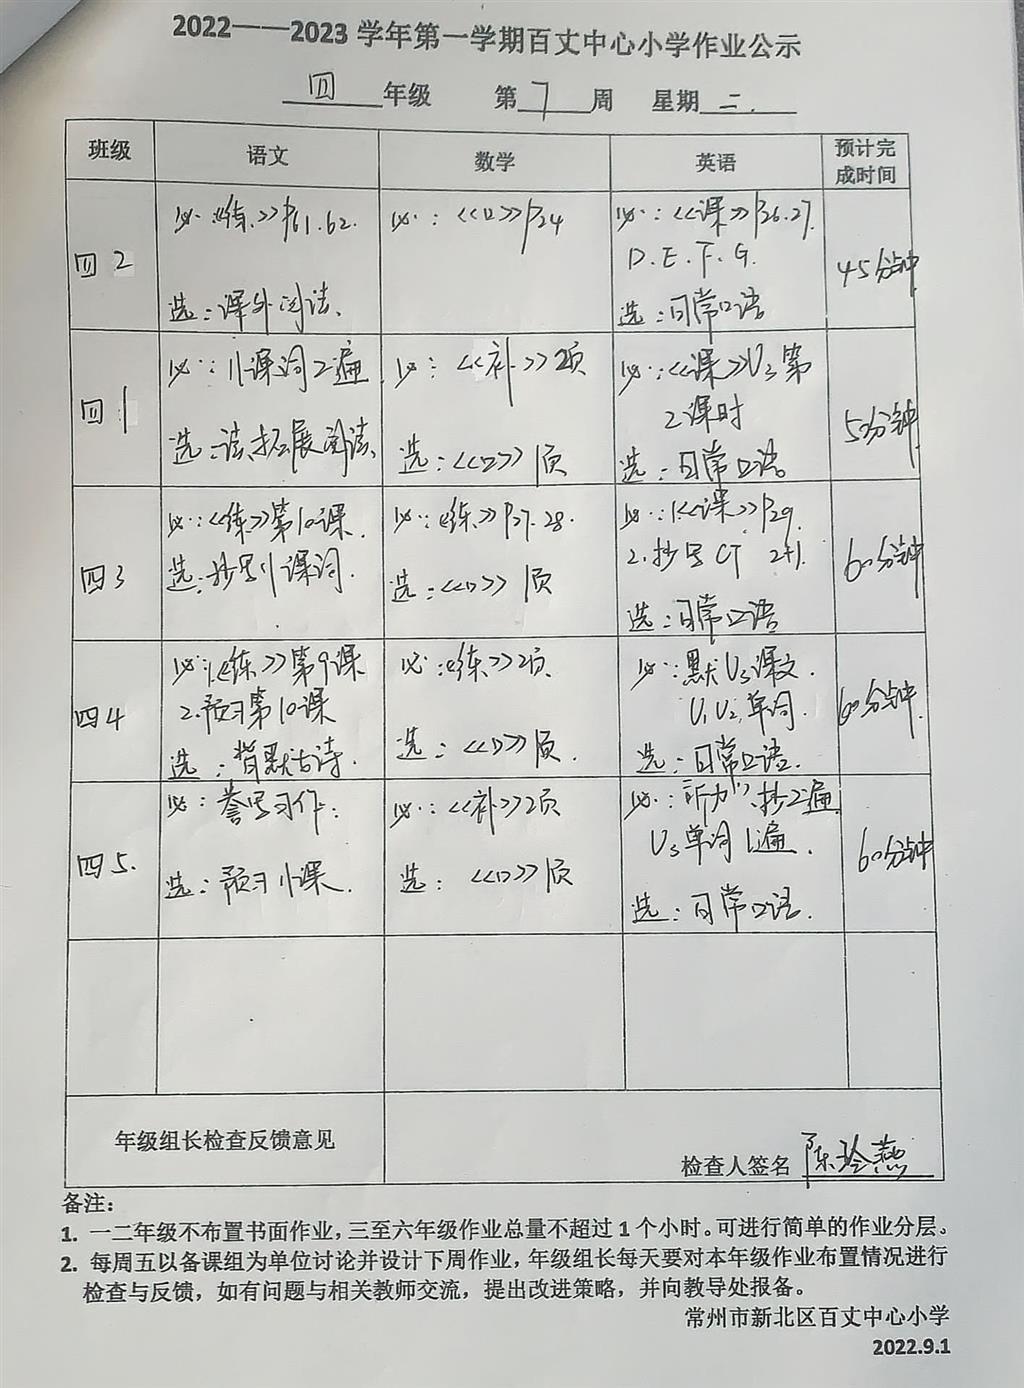 2022——2023 学年第一学期百丈中心小学作业公示
四 年级 第 7 周 星期 二.
班级 语文 数学 英语 预计完成时间
四2
必:《练》P61.62.
选:课外阅读.
必:《口》P24
必:《课》P26.27.
D.E.F.G.
选:日常口语
45分钟
四1
必:11课词2遍
选:读拓展阅读.
必:《补》2页
选:《口》1页
必:《课》U3第
2课时
选:日常口语
50分钟
四3
必:《练》第10课.
选:抄写11课词.
必:《练》P27.28.
选:《口》1页
必:1.《课》P29.
2.抄写CT 2+1.
选:日常口语
60分钟
四4
必:1.《练》第9课
2.预习第10课
选:背默古诗.
必:《练》2页.
选:《口》1页.
必:默U3课文.
U1U2单词.
选:日常口语.
60分钟.
四5.
必:誊写习作.
选:预习11课.
必:《补》2页
选:《口》1页
必:听力,抄2遍
U3单词1遍.
选:日常口语.
60分钟
年级组长检查反馈意见
检查人签名 陈玲燕
备注:
1. 一二年级不布置书面作业,三至六年级作业总量不超过 1 个小时。可进行简单的作业分层。
2. 每周五以备课组为单位讨论并设计下周作业,年级组长每天要对本年级作业布置情况进行
检查与反馈,如有问题与相关教师交流,提出改进策略,并向教导处报备。
常州市新北区百丈中心小学
2022.9.1